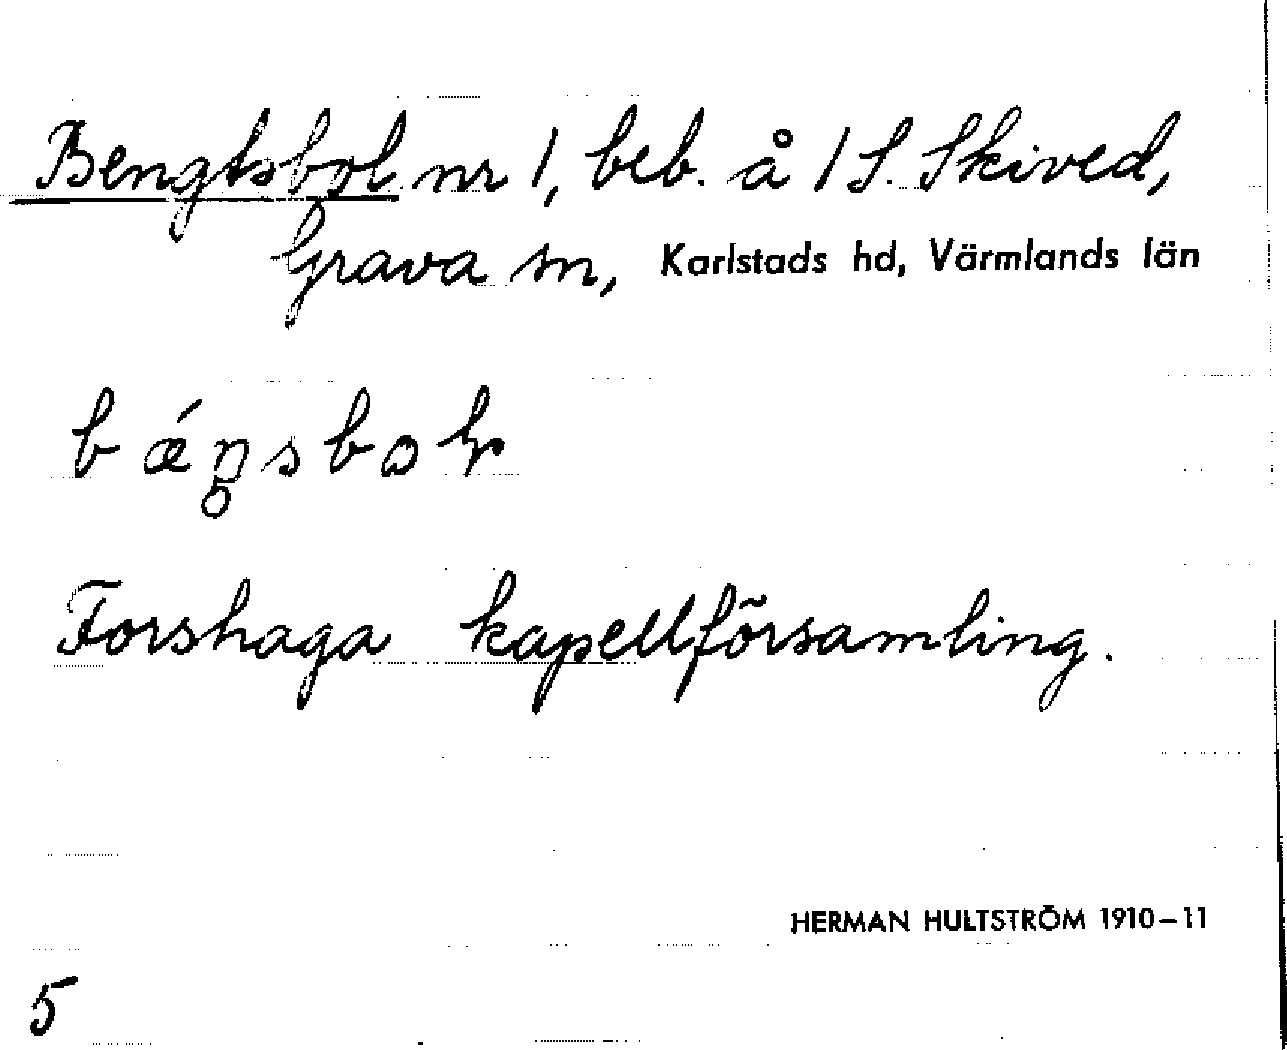 Bengtsbol nr 1, beb. å 1 S. Skived,
Grava sn, Karlstads hd, Värmlands län
Forshaga kapellförsamling.
HERMAN HULTSTRÖM 1910–11
5